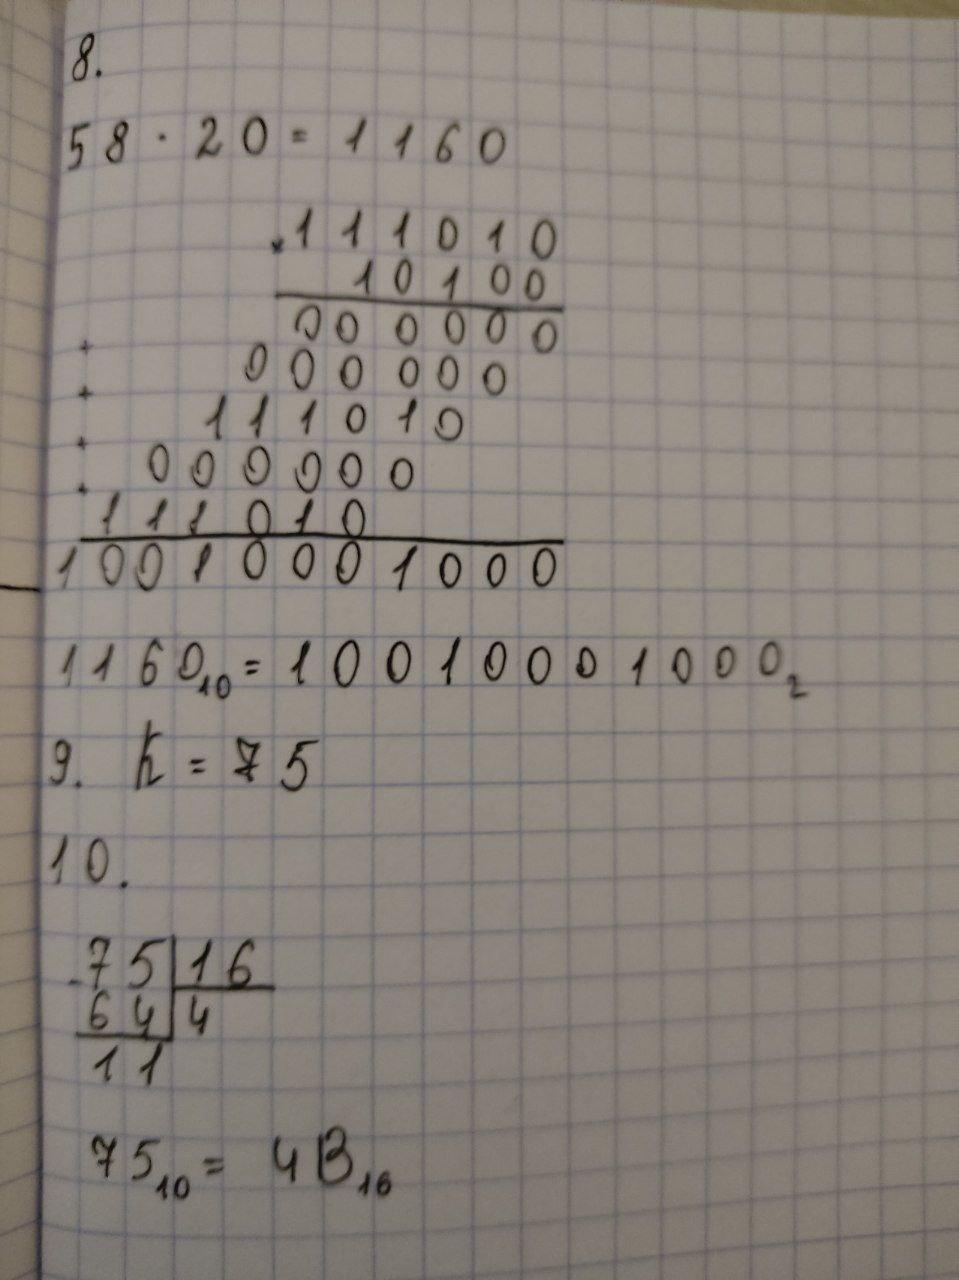 8.
58 · 20 = 1160
× 111010
10100
000000
+ 000000
+ 111010
+ 000000
+ 111010
10010001000
1160₁₀ = 10010001000₂
9. k = 75
10.
- 75 | 16
64 | 4
11
75₁₀ = 4B₁₆